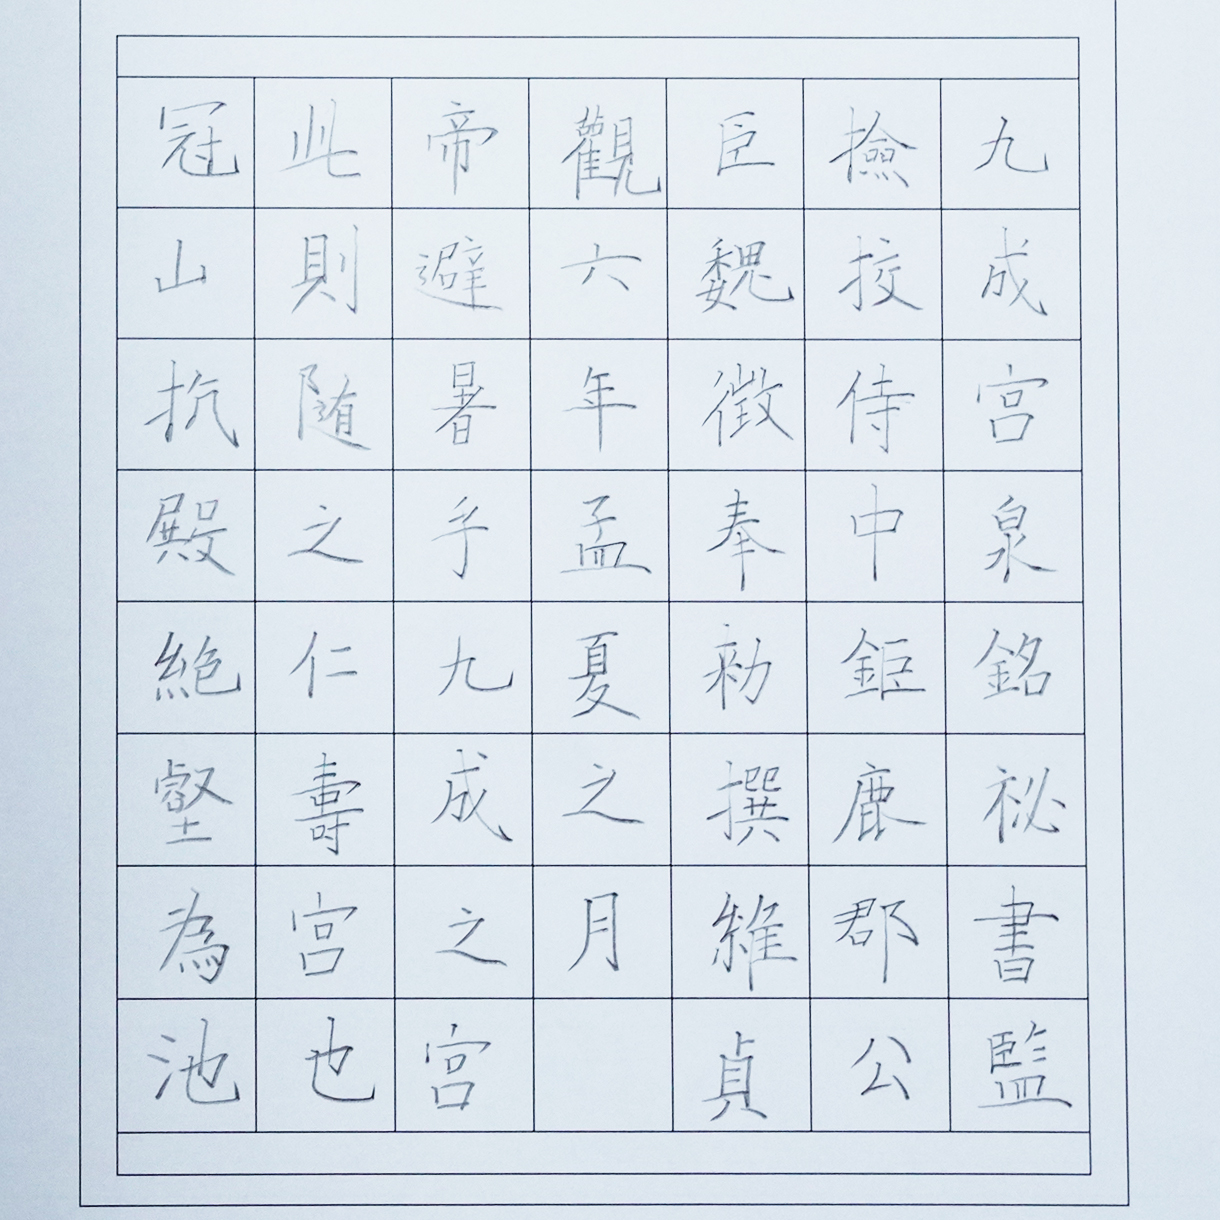 九成宫泉銘祕書監
撿挍侍中鉅鹿郡公
臣魏徵奉勑撰維貞
觀六年孟夏之月
帝避暑乎九成之宫
此則随之仁壽宫也
冠山抗殿絶壑為池